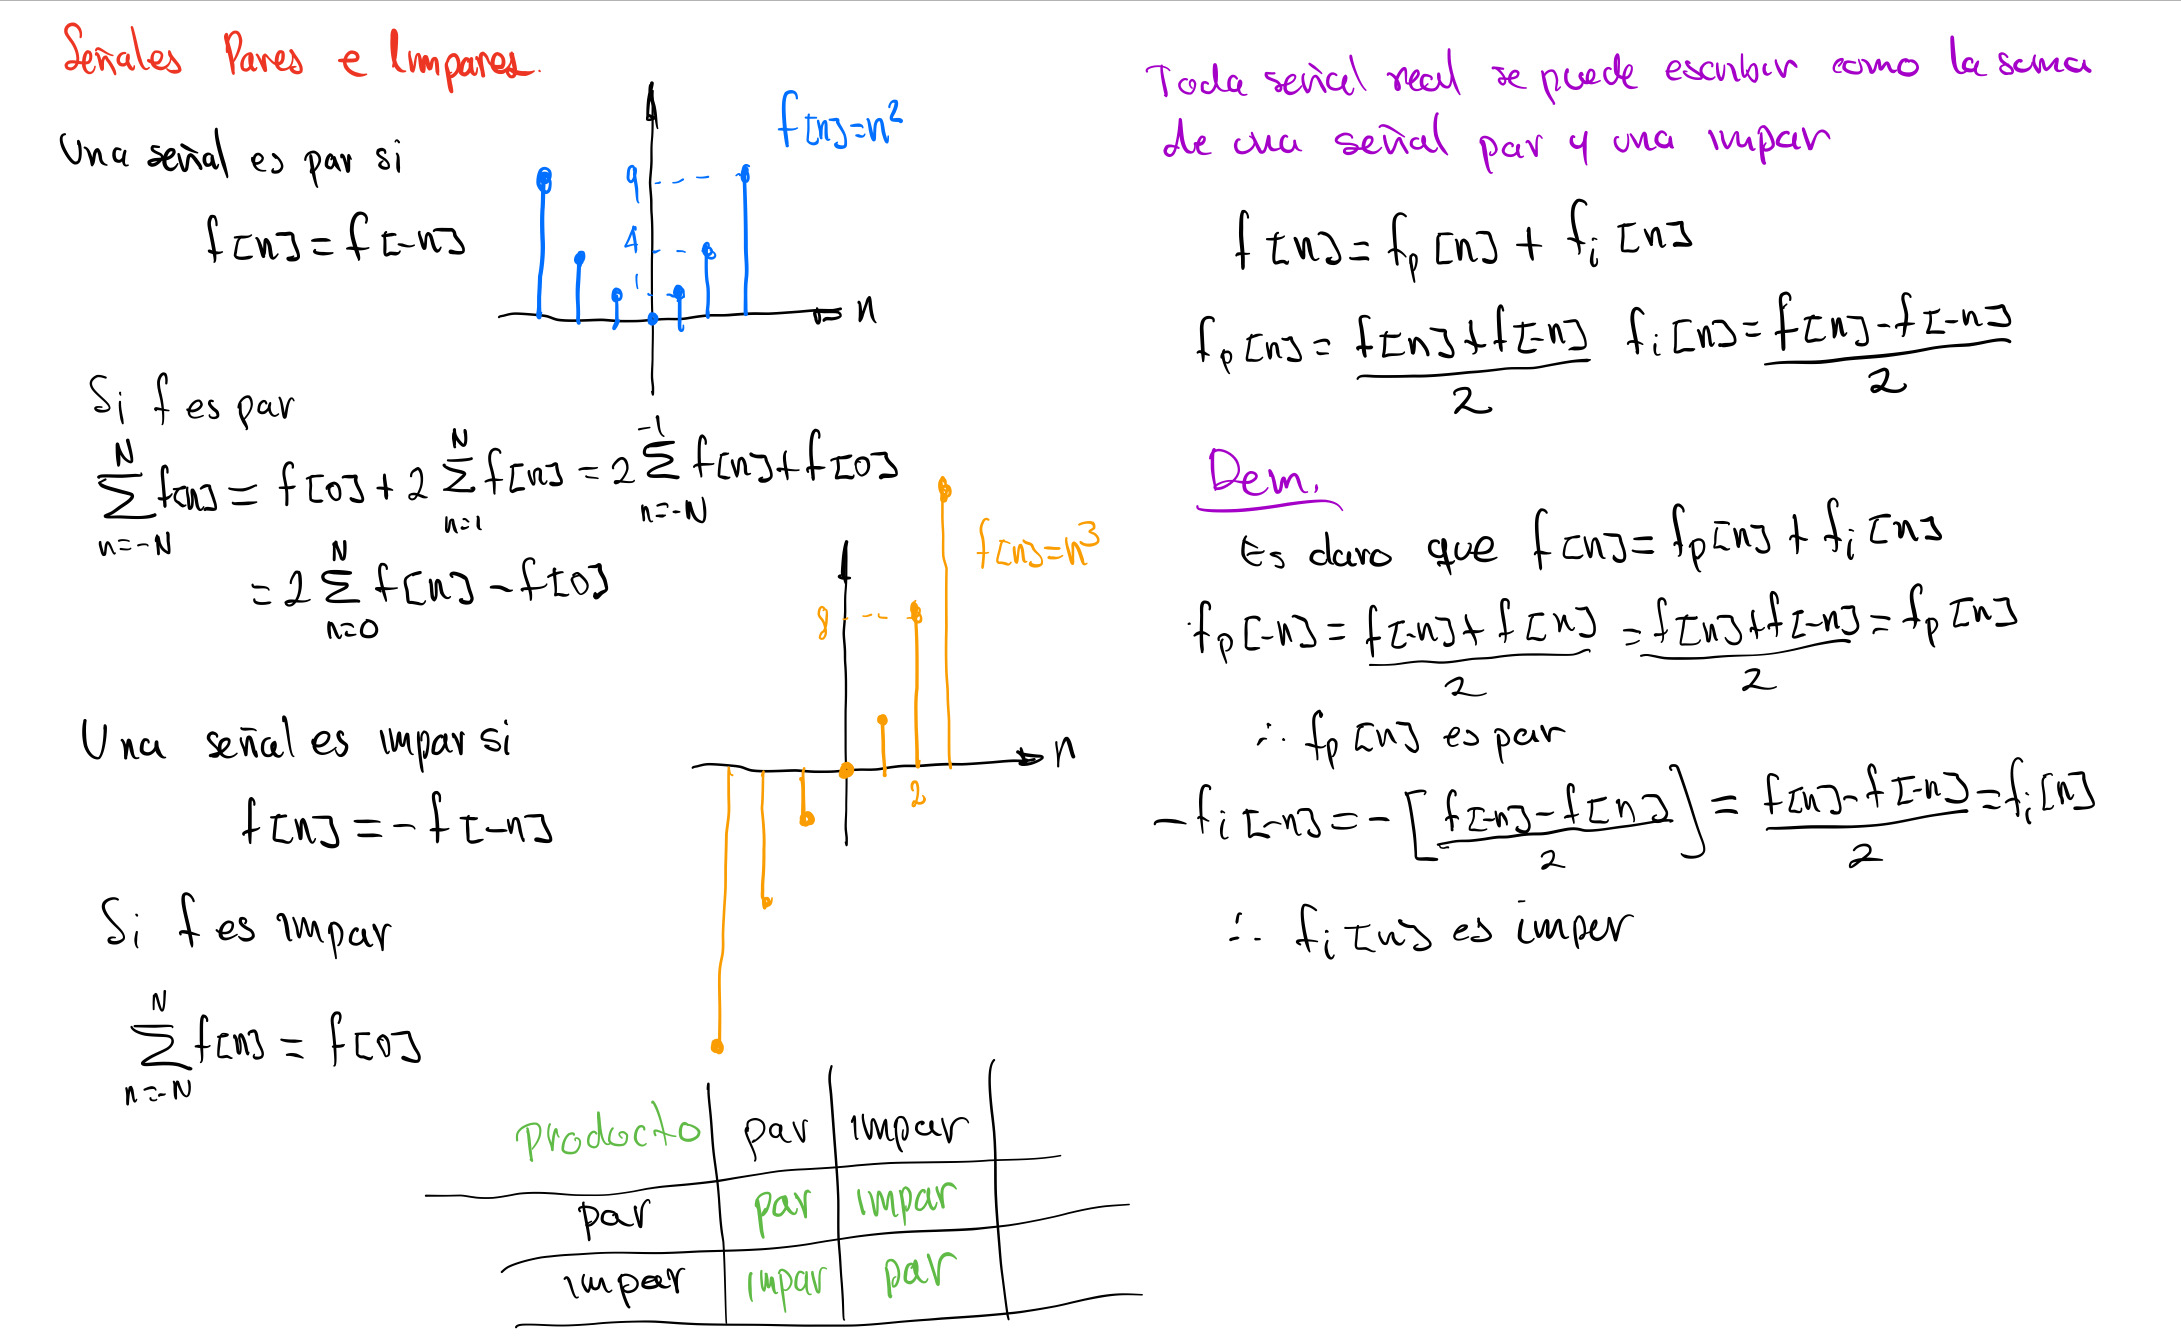 Señales Pares e Impares.
Una señal es par si
f[n] = f[-n]
f[n]=n²
9
4
1
n
Si f es par
∑_{n=-N}^{N} f[n] = f[0] + 2 ∑_{n=1}^{N} f[n] = 2 ∑_{n=-N}^{-1} f[n] + f[0]
= 2 ∑_{n=0}^{N} f[n] - f[0]
f[n]=n³
8
n
2
Una señal es impar si
f[n] = - f[-n]
Si f es impar
∑_{n=-N}^{N} f[n] = f[0]
Producto par impar
par par impar
impar impar par
Toda señal real se puede escribir como la suma
de una señal par y una impar
f[n] = f_p[n] + f_i[n]
f_p[n] = (f[n]+f[-n])/2 f_i[n] = (f[n]-f[-n])/2
Dem.
Es claro que f[n] = f_p[n] + f_i[n]
f_p[-n] = (f[-n]+f[n])/2 = (f[n]+f[-n])/2 = f_p[n]
∴ f_p[n] es par
-f_i[-n] = -[(f[-n]-f[n])/2] = (f[n]-f[-n])/2 = f_i[n]
∴ f_i[n] es impar